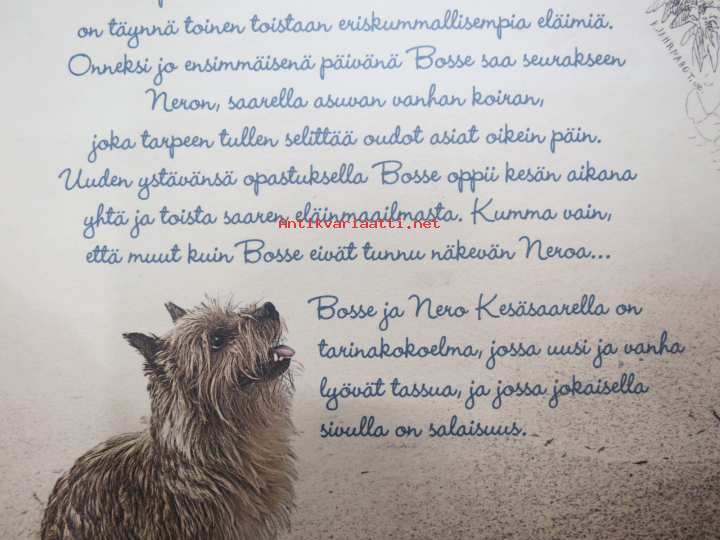 on täynnä toinen toistaan eriskummallisempia eläimiä.
Onneksi jo ensimmäisenä päivänä Bosse saa seurakseen
Neron, saarella asuvan vanhan koiran,
joka tarpeen tullen selittää oudot asiat oikein päin.
Uuden ystävänsä opastuksella Bosse oppii kesän aikana
yhtä ja toista saaren eläinmaailmasta. Kumma vain,
Antikvariaatti.net
että muut kuin Bosse eivät tunnu näkevän Neroa...
Bosse ja Nero Kesäsaarella on
tarinakokoelma, jossa uusi ja vanha
lyövät tassua, ja jossa jokaisella
sivulla on salaisuus.